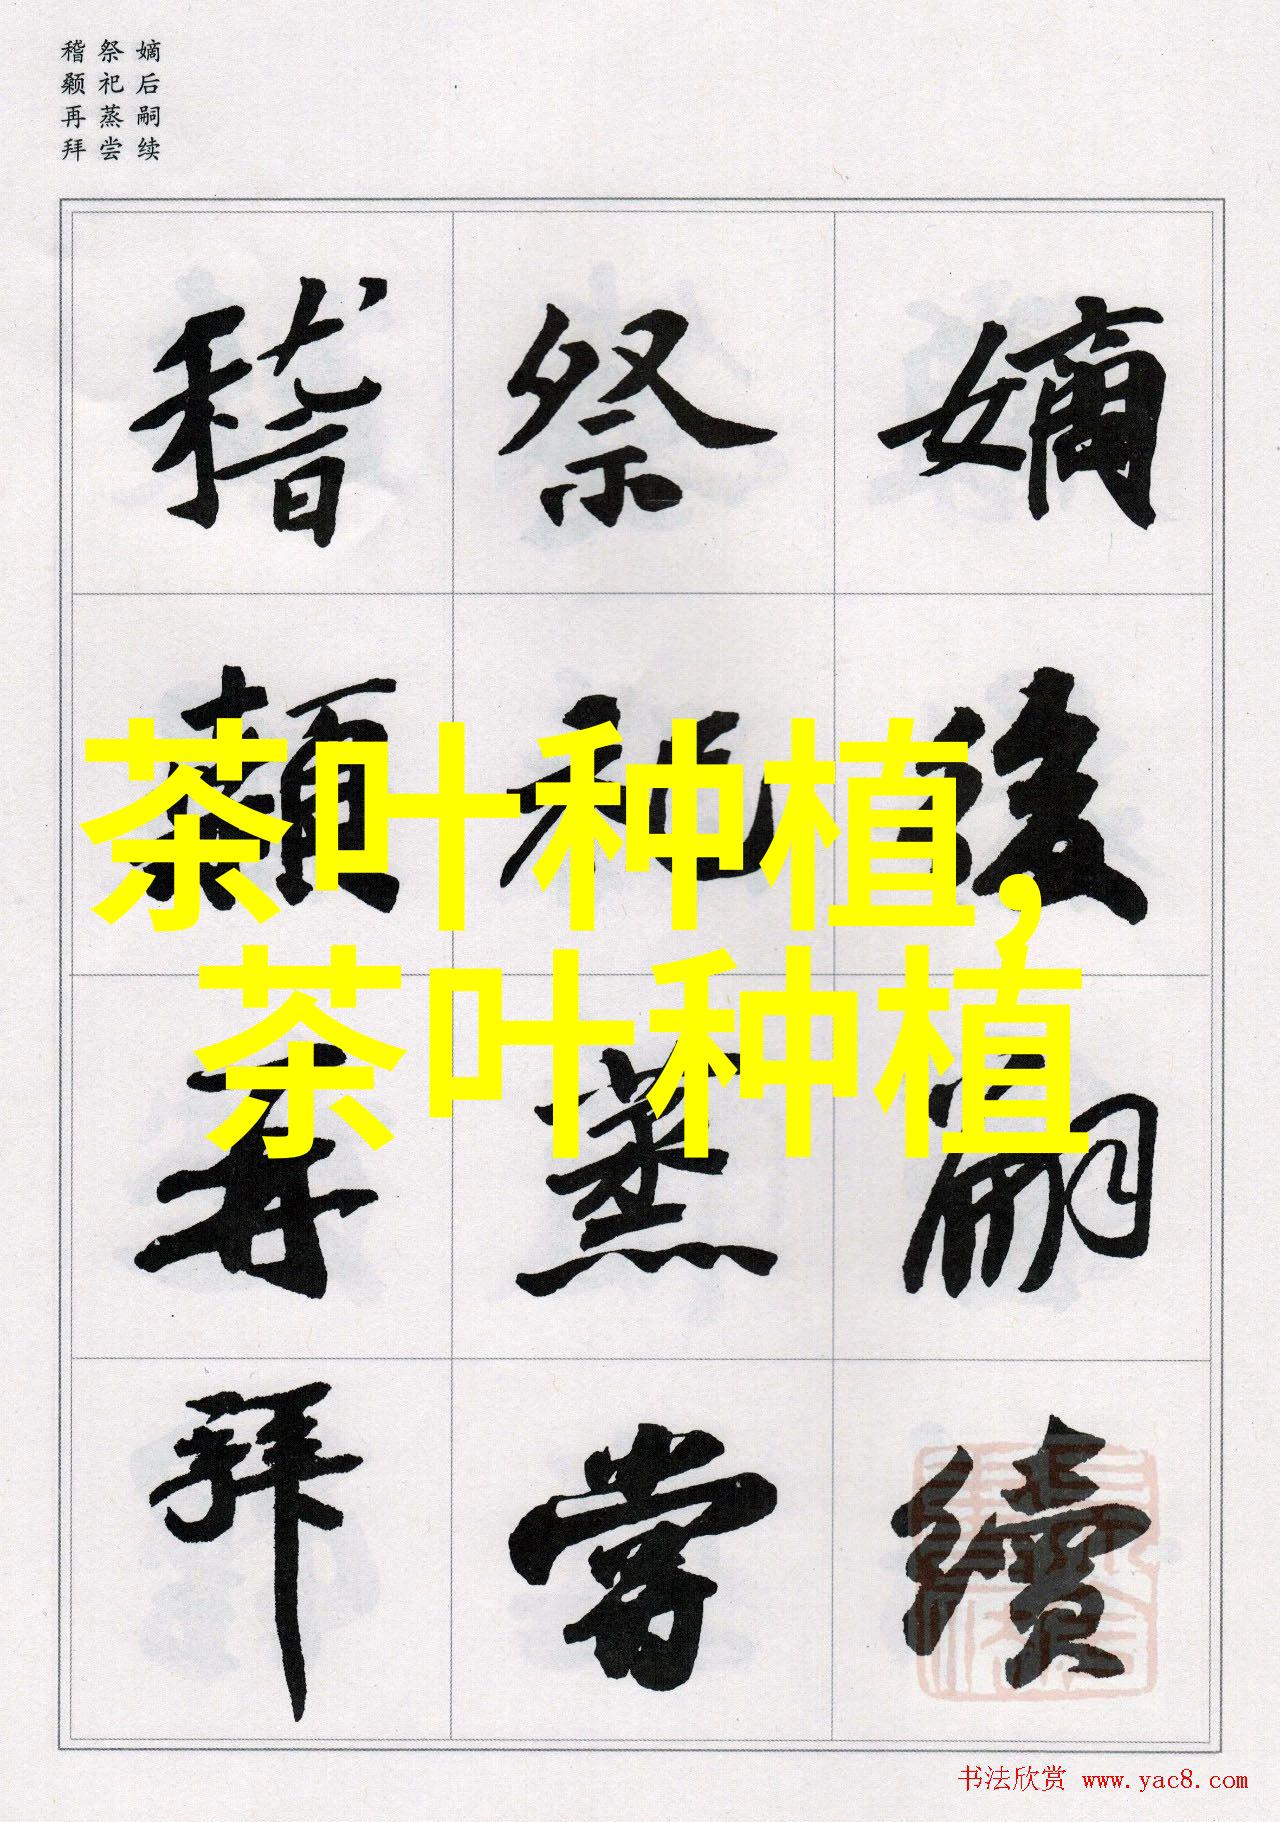 嫡后嗣续
祭祀蒸尝
稽颡再拜
嫡後嗣續
祭祀蒸嘗
稽顙再拜
茶叶种植，
茶叶种植
书法欣赏 www.yac8.com